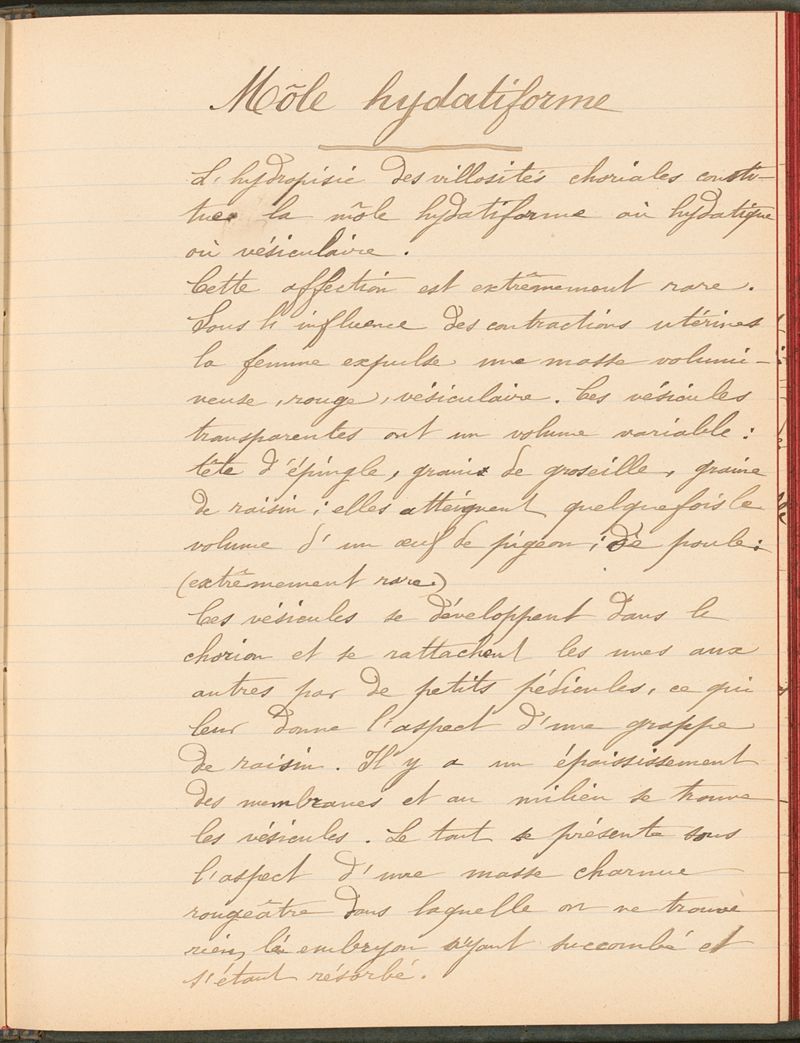 Môle hydatiforme
L'hydropisie des villosités choriales consti-
tue la môle hydatiforme où hydatique
où vésiculaire.
Cette affection est extrêmement rare.
Sous l'influence des contractions utérines
la femme expulse une masse volumi-
neuse, rouge, vésiculaire. Ces vésicules
transparentes ont un volume variable :
tête d'épingle, grains de groseille, graine
de raisin ; elles atteignent quelquefois le
volume d'un œuf de pigeon ; de poule :
(extrêmement rare)
Ces vésicules se développent dans le
chorion et se rattachent les unes aux
autres par de petits pédicules, ce qui
leur donne l'aspect d'une grappe
de raisin. Il y a un épaississement
des membranes et au milieu se trouve
les vésicules. Le tout se présente sous
l'aspect d'une masse charnue
rougeâtre dans laquelle on ne trouve
rien, l'embryon ayant succombé et
s'étant résorbé.